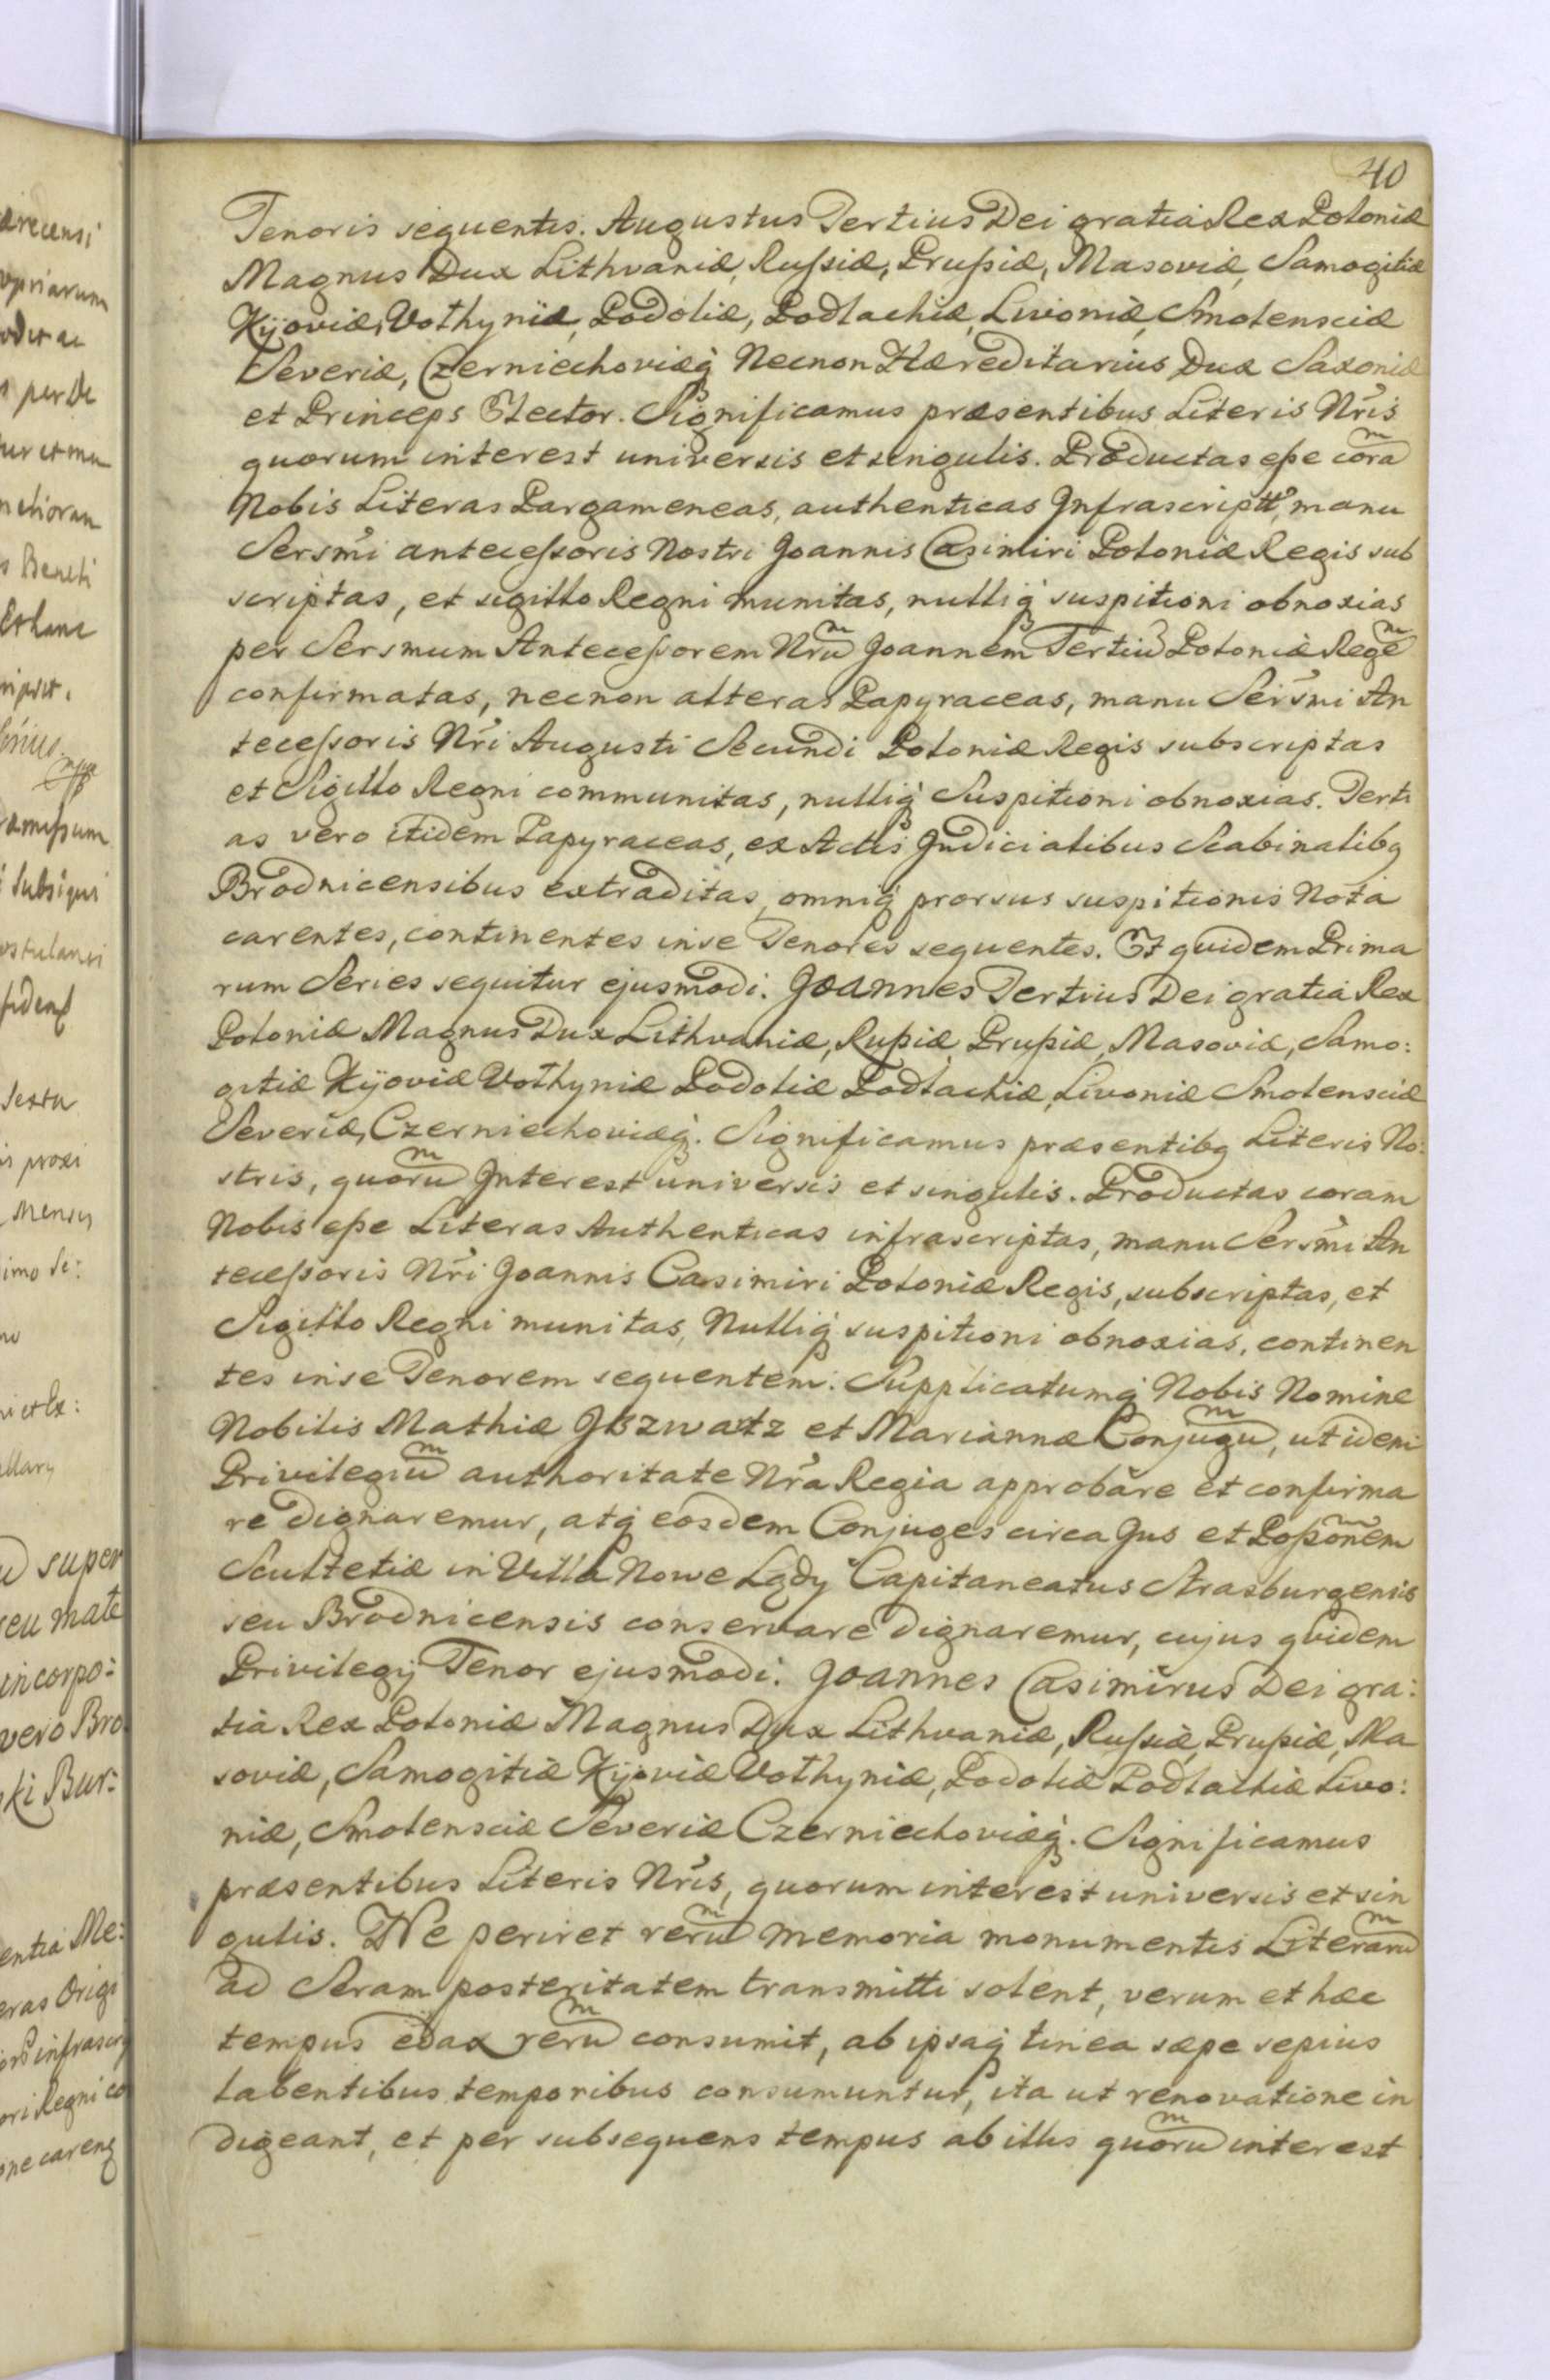 40
Tenoris sequentis. Augustus Tertius Dei gratia Rex Poloniæ
Magnus Dux Lithvaniæ, Russiæ, Prussiæ, Masoviæ, Samogitiæ
Kijoviæ, Volhyniæ, Podoliæ, Podlachiæ, Livoniæ, Smolensciæ
Severiæ, Czerniechoviæq̃ Necnon Hæreditarius Dux Saxoniæ
et Princeps Elector. Significamus præsentibus Literis Nr̃is
quorum interest universis et singulis. Productas esse cora᷃m
Nobis Literas Pargameneas, authenticas Infrascriptt, manu
Sersm̃i antecessoris Nostri Joannis Casimiri Poloniæ Regis sub
scriptas, et sigillo Regni munitas, nulliq̃ suspitioni obnoxias
per Sersmum Antecessorem Nrũm Joannem Tertiũ Poloniæ Regẽm
confirmatas, necnon alteras Papyraceas, manu Sersm̃i An
tecessoris Nr̃i Augusti Secundi Poloniæ Regis subscriptas
et Sigillo Regni communitas, nulliq̃ Suspitioni obnoxias. Terti
as vero itidem Papyraceas, ex Actis Judicialibus Scabinalibq
Brodnicensibus extraditas, omniq̃ prorsus suspitionis Nota
carentes, continentes in se Tenores sequentes. Et quidem Prima
rum Series sequitur ejusmodi. Joannes Tertius Dei gratia Rex
Poloniæ Magnus Dux Lithvaniæ, Russiæ, Prussiæ, Masoviæ, Samo:
gitiæ Kijoviæ Volhyniæ Podoliæ Podlachiæ, Livoniæ Smolensciæ
Severiæ, Czerniechoviæq̃. Significamus præsentibq Literis No:
stris, quorũm Interest universis et singulis. Productas coram
Nobis esse Literas Authenticas infrascriptas, manu Sersm̃i An
tecessoris Nr̃i Joannis Casimiri Poloniæ Regis, subscriptas, et
Sigillo Regni munitas, Nulliq̃ suspitioni obnoxias, continen
tes in se Tenorem sequentem. Supplicatumq̃ Nobis Nomine
Nobilis Mathiæ Iszwatz et Mariannæ Conjugũm, ut idem
Privilegiũm authoritate Nr̃a Regia approbare et confirma
re dignaremur, atq̃ eosdem Conjuges circa Jus et Possõnem
Scultetiæ in Villa Nowe Lądy Capitaneatus Strasburgensis
seu Brodnicensis conservare dignaremur, cujus quidem
Privilegij Tenor ejusmodi. Joannes Casimirus Dei gra:
tia Rex Poloniæ Magnus Dux Lithvaniæ, Russiæ, Prussiæ, Ma
soviæ, Samogitiæ Kijoviæ Volhyniæ, Podoliæ Podlachiæ Livo:
niæ, Smolensciæ Severiæ Czerniechoviæq̃. Significamus
præsentibus Literis Nr̃is, quorum interest universis et sin
gulis. Ne periret rerũm memoria monumentis Literarũm
ad Seram posteritatem transmitti solent, verum et hæc
tempus edax rerũm consumit, ab ipsaq̃ tinea sæpe sepius
labentibus temporibus consumuntur, ita ut renovatione in
digeant, et per subsequens tempus ab illis quorũm interest